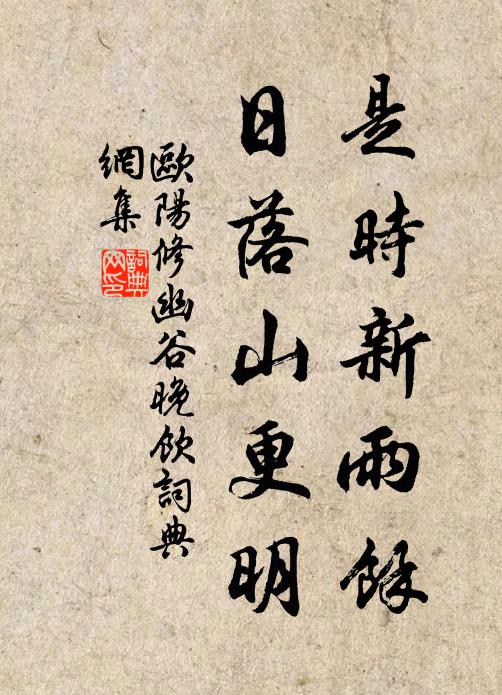 是時新雨餘
日落山更明
歐陽修幽谷晚飲詞典
網集
詞典網印